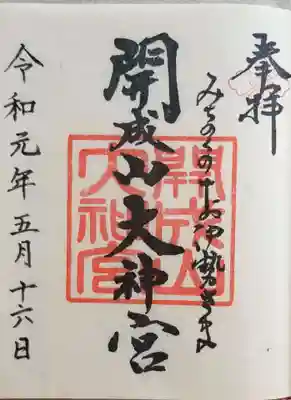 奉拝
みちのくのお伊勢さま
開成山大神宮
開成山大神宮
令和元年五月十六日